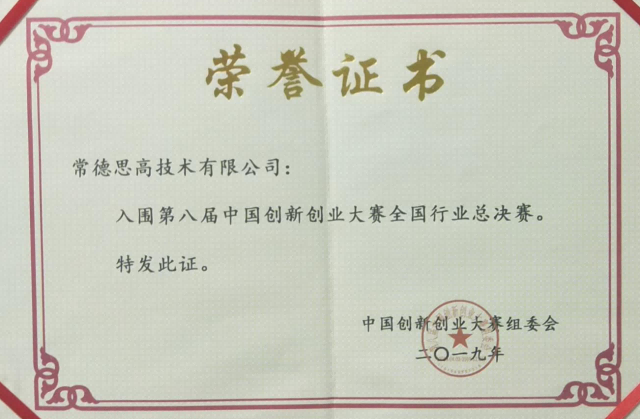 荣誉证书
常德思高技术有限公司：
入围第八届中国创新创业大赛全国行业总决赛。
特发此证。
中国创新创业大赛组委会
二〇一九年